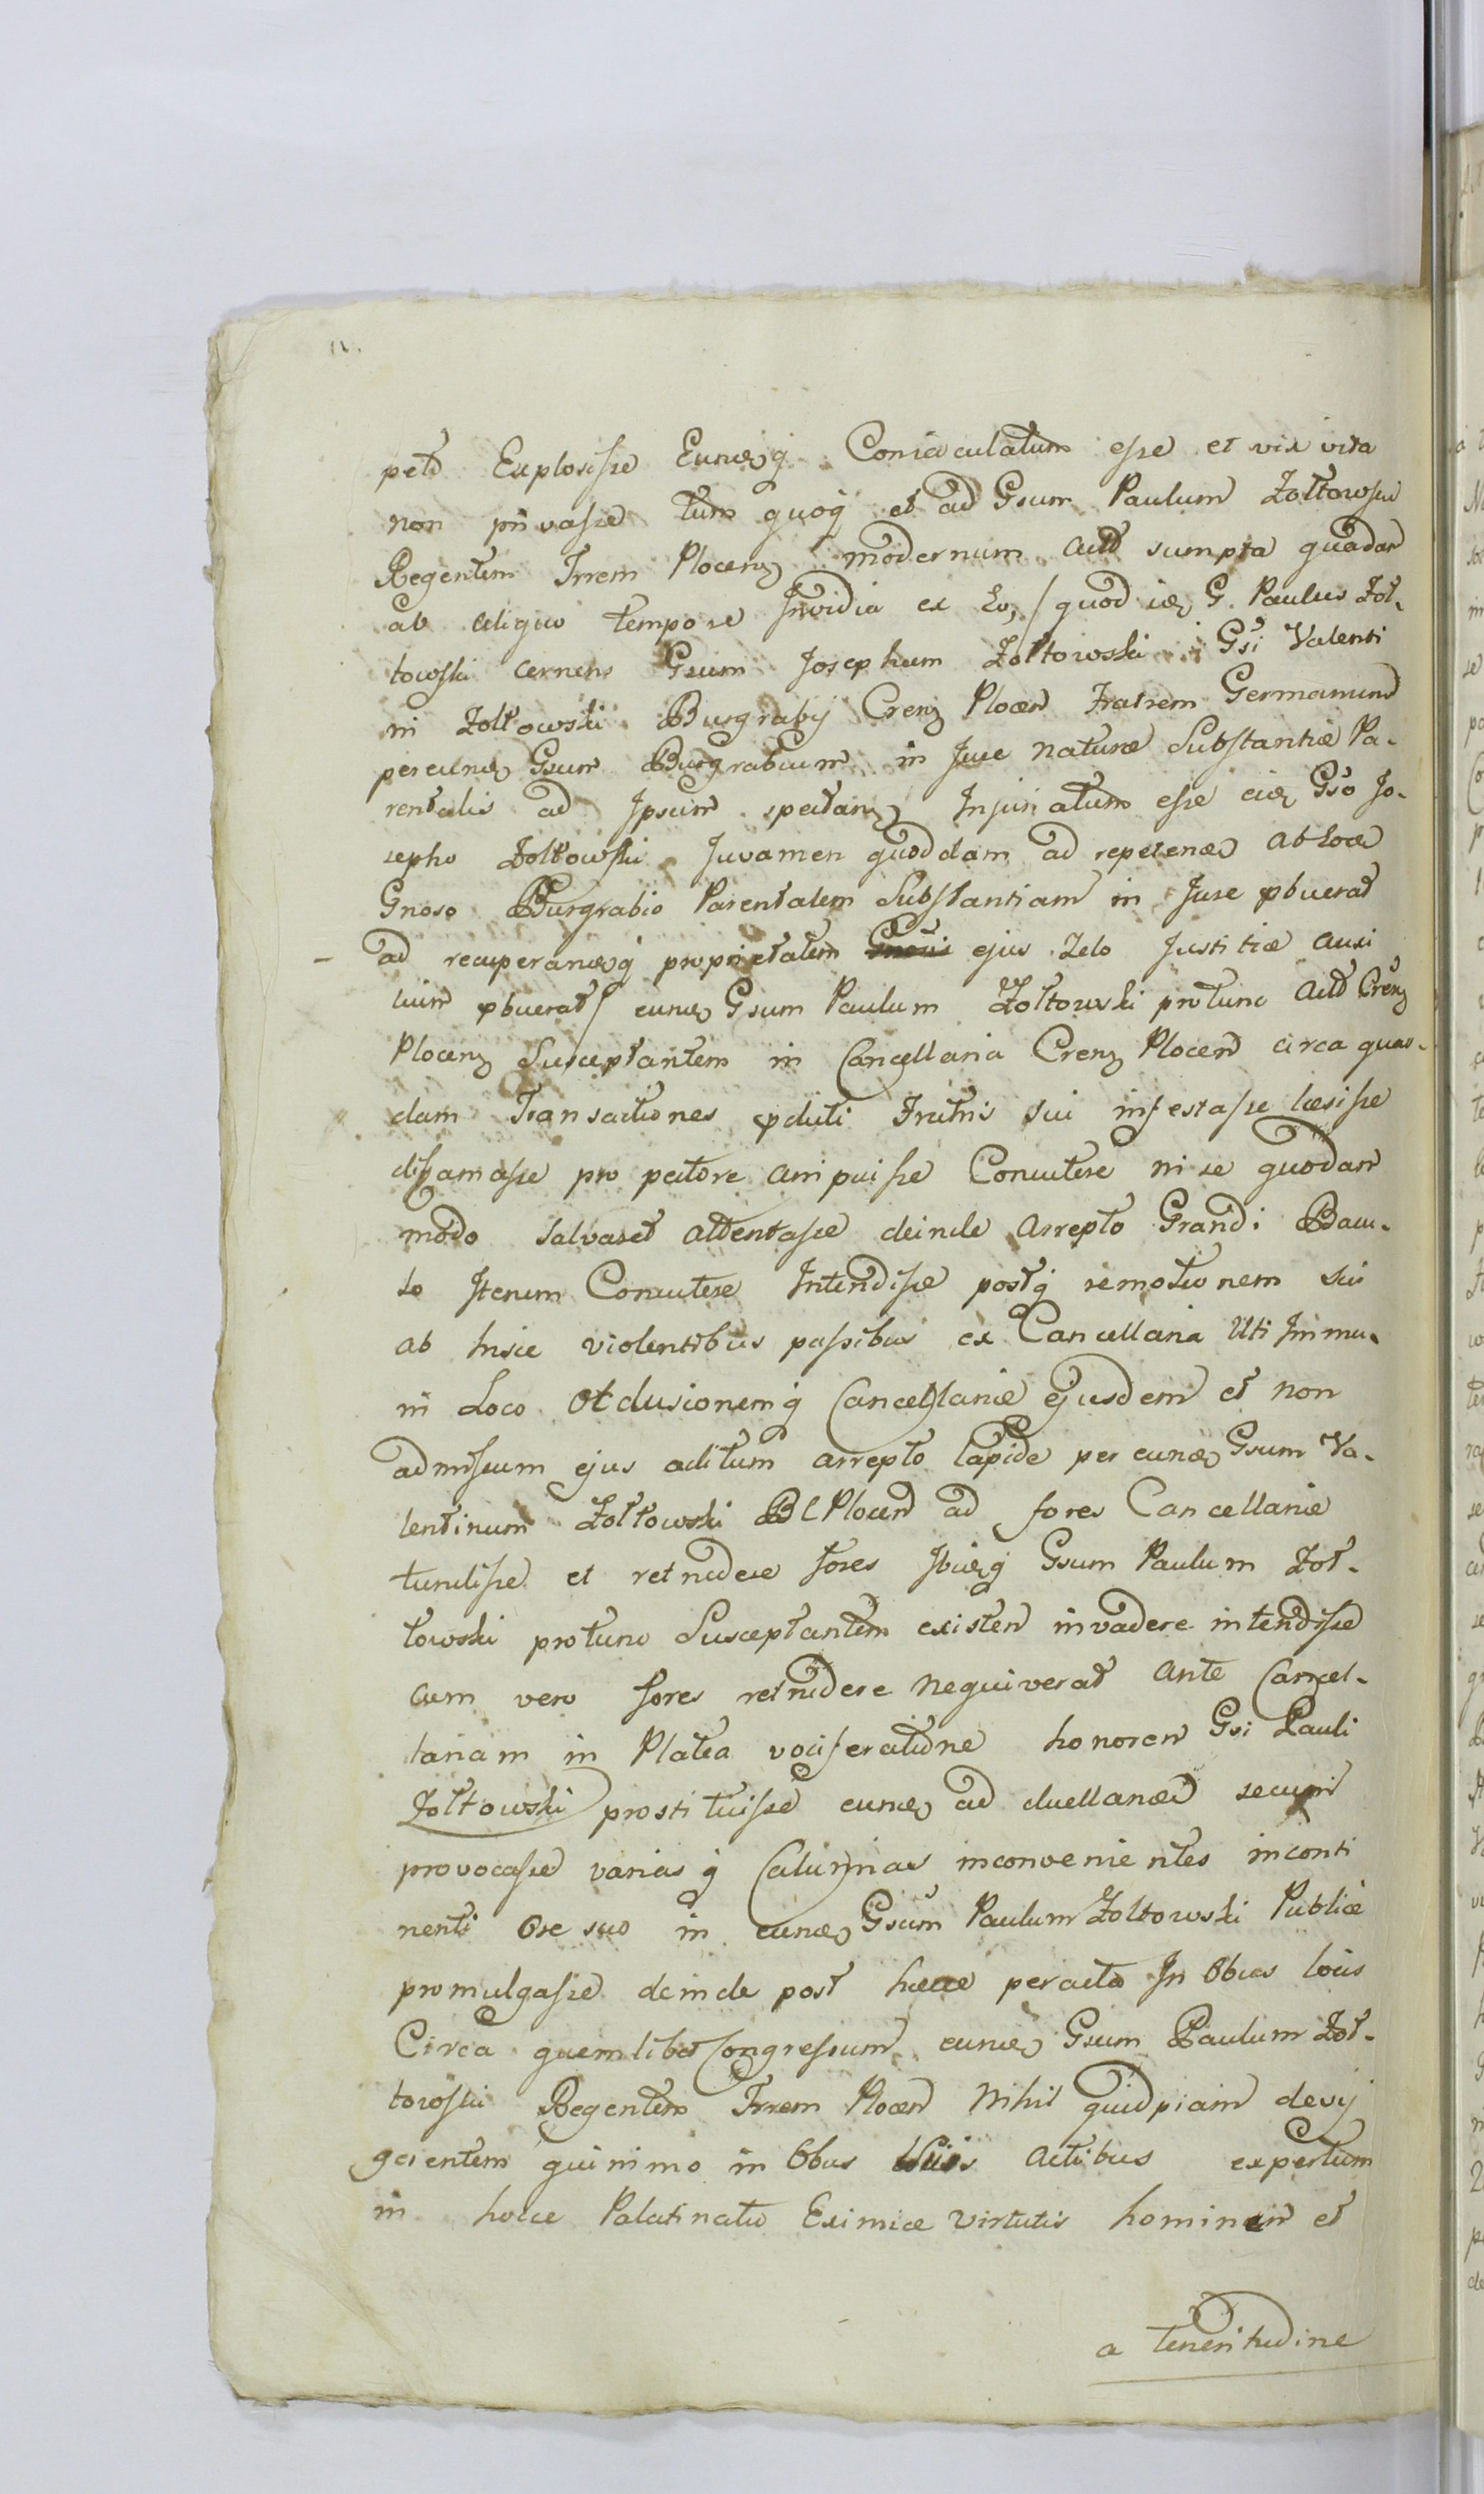 pett Explosisse Eundeq Coniaculatum esse et vix vita
non privasse tum quoq et ad Gsum Paulum Zołtowski
Regentem Trrem Plocen modernum actu sumpta quadam
ab aliquo tempore Invidia ex Eo, / quod idem G. Paulus Zoł-
towski cernens Gsum Josephum Zołtowski Gsi Valenti
ni Zołtowski Burgrabij Cren Plocen Fratrem Germanum
per eund Gsum Burgrabium in Jure naturæ Substantiæ Pa-
rentalis ad Ipsum spectan Injuriatum esse eid Gso Jo-
sepho Zołtowski Juvamen quoddam ad repetend ab Eod
Gnoso Burgrabio Parentalem Substantiam in Jure pbuerat
- ad recuperandq proprietatem ejus Zelo Justitiæ auxi
lium pbuerat / eund Gsum Paulum Zołtowski protunc actu Cren
Plocen Susceptantem in Cancellaria Cren Plocen circa quas-
dam Transactiones pdicti Fratris sui infestasse læsisse
difamasse pro pectore arripuisse Concutere ni se quodam
modo salvaret attentasse deinde arrepto Grandi Bacu-
lo Iterum Concutere Intendisse postq remotionem sui
ab hisce violentibus passibus ex Cancellaria Uti Immu-
ni Loco Oclusionemq Cancellariæ ejusdem et non
admissum ejus aditum arrepto lapide per eund Gsum Va-
lentinum Zołtowski B C Plocen ad fores Cancellariæ
tundisse et retrudere fores Ibidq Gsum Paulum Zoł-
towski protunc Susceptantem existen invadere intendisse
cum vero fores retrudere nequiverat ante Cancel-
lariam in Platea vociferatione honorem Gsi Pauli
Zołtowski prostituisse eund ad duelland secum
provocasse variasq Calumnias inconvenientes inconti
nenti Ore suo in eund Gsum Paulum Zołtowski Publice
promulgasse deinde post hæcce peracta In Obus locis
Circa quemlibet Congressum eund Gsum Paulum Zoł-
towski Regentem Trrem Plocen Nihil quidpiam devij
gerentem quinimo in Obus suis actibus expertum
in hocce Palatinatu Eximiæ virtutis hominem et
a teneritudine